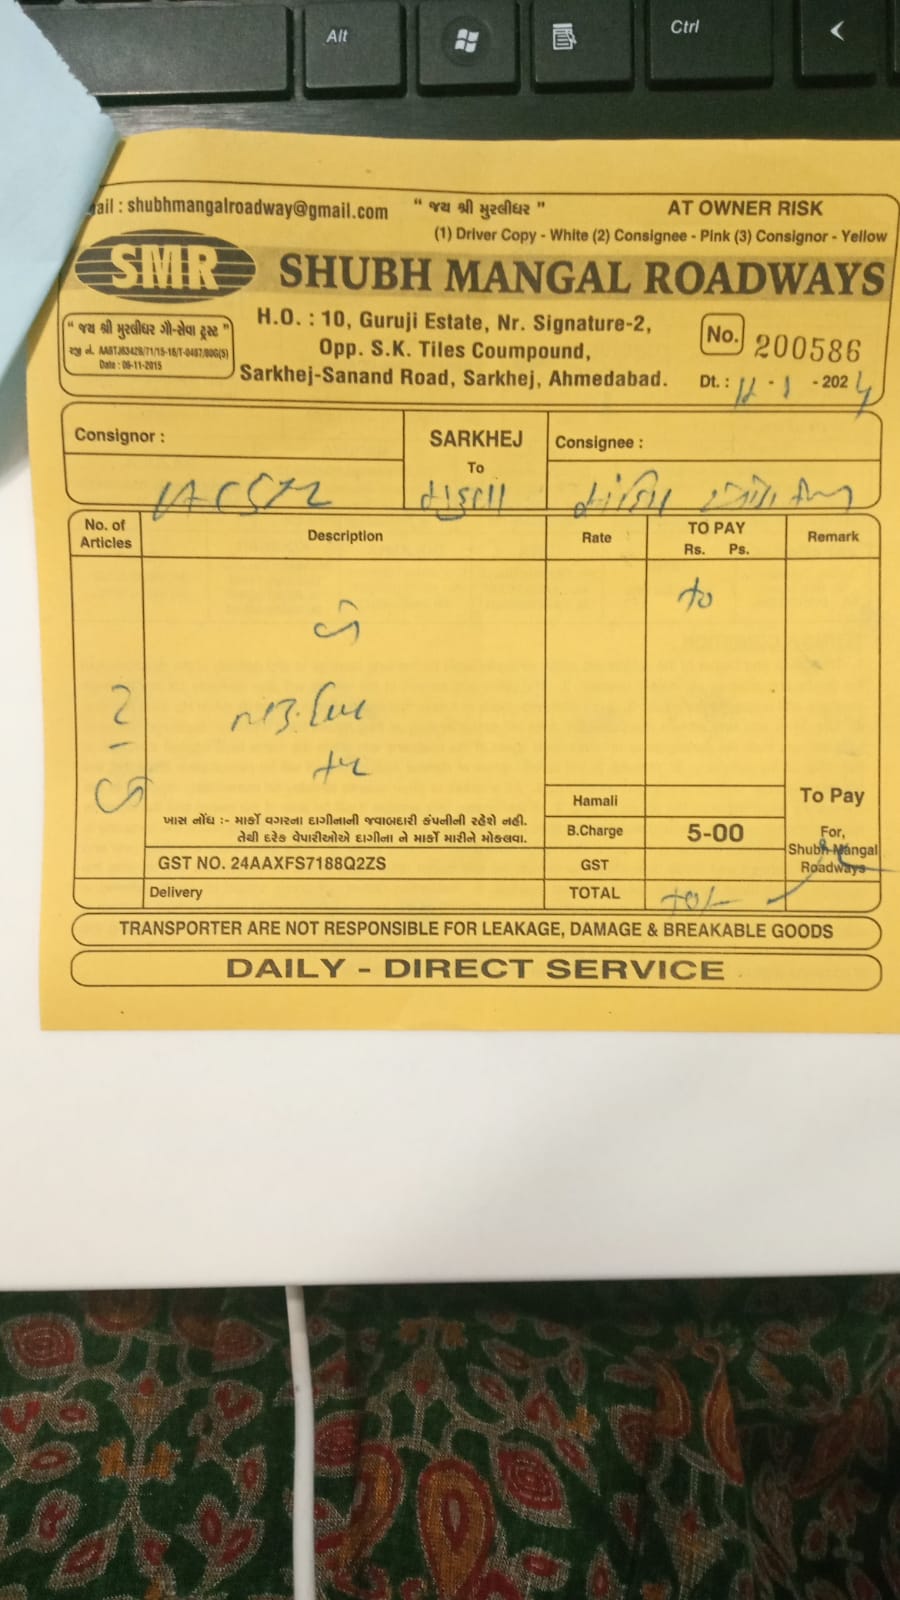 Alt
Ctrl
ail : shubhmangalroadway@gmail.com " જય શ્રી મુરલીધર " AT OWNER RISK
(1) Driver Copy - White (2) Consignee - Pink (3) Consignor - Yellow
SMR SHUBH MANGAL ROADWAYS
" જય શ્રી મુરલીધર ગૌ-સેવા ટ્રસ્ટ "
Date : 06-11-2015
H.O. : 10, Guruji Estate, Nr. Signature-2,
Opp. S.K. Tiles Coumpound,
Sarkhej-Sanand Road, Sarkhej, Ahmedabad.
No. 200586
Dt. : 11 - 1 - 2024
Consignor : SARKHEJ To Consignee :
No. of Articles Description Rate TO PAY Rs. Ps. Remark
ખાસ નોંધ :- માર્કો વગરના દાગીનાની જવાબદારી કંપનીની રહેશે નહી.
તેથી દરેક વેપારીઓએ દાગીના ને માર્કો મારીને મોકલવા.
Hamali
B.Charge 5-00
To Pay
For,
Shubh Mangal
Roadways
GST NO. 24AAXFS7188Q2ZS GST
Delivery TOTAL
TRANSPORTER ARE NOT RESPONSIBLE FOR LEAKAGE, DAMAGE & BREAKABLE GOODS
DAILY - DIRECT SERVICE